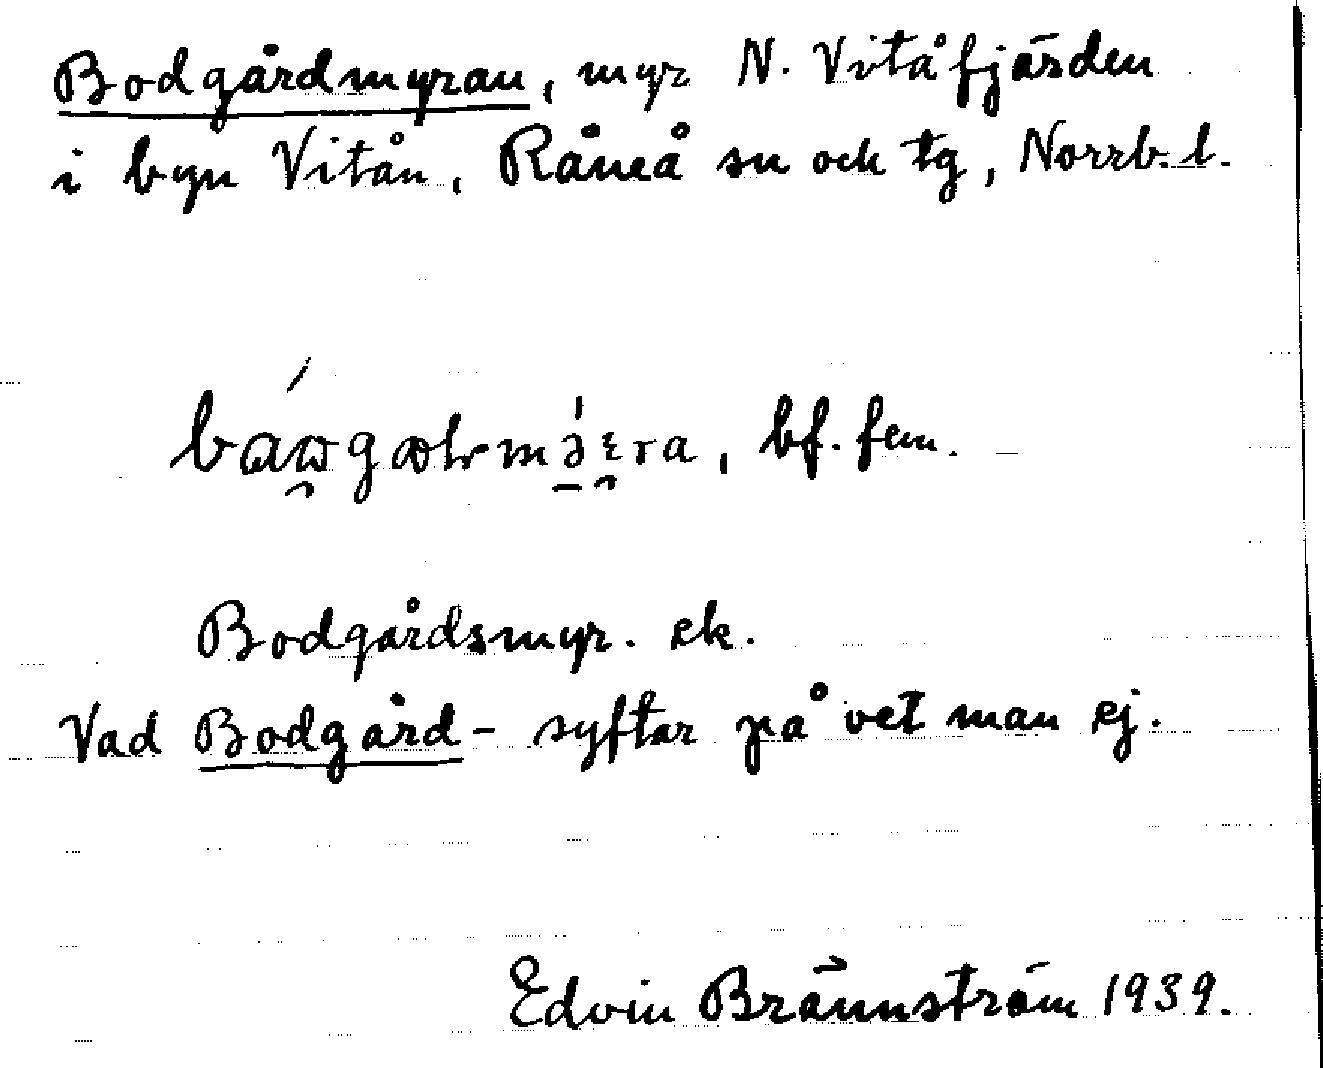 Bodgårdmyran, myr N. Vitåfjärden
i byn Vitån, Råneå sn och tg, Norrb. l.
bf. fem.
Bodgårdsmyr. ek.
Vad Bodgård- syftar på vet man ej.
Edvin Brännström 1939.